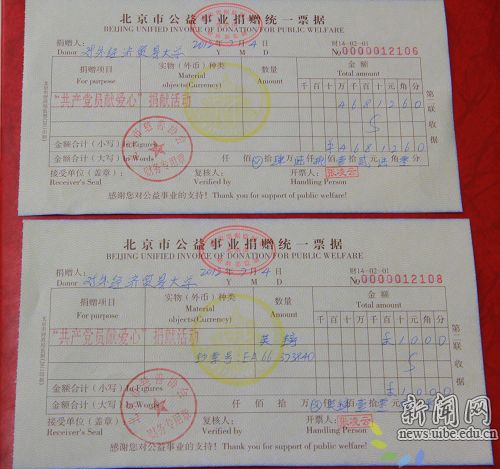 北京市公益事业捐赠统一票据
BEIJING UNIFIED INVOICE OF DONATION FOR PUBLIC WELFARE
捐赠人: 对外经济贸易大学 2012年7月4日 财14-02-01
Donor Y M D No 0000012106
捐赠项目 实物(外币)种类 数量 金额
For purpose Material objects(Currency) Amount Total amount
千百十万千百十元角分
"共产党员献爱心"捐献活动 4681260
金额合计(小写)In Figures ¥4681260
金额合计(大写)In Words 仟 佰 拾 万 仟 佰 拾 元 角 分
接受单位(盖章): 复核人: 开票人:
Receiver's Seal Verified by Handling Person
感谢您对公益事业的支持! Thank you for support of public welfare!
第二联 收据
财务专用章
北京市公益事业捐赠统一票据
BEIJING UNIFIED INVOICE OF DONATION FOR PUBLIC WELFARE
捐赠人: 对外经济贸易大学 2012年7月4日 财14-02-01
Donor Y M D No 0000012108
捐赠项目 实物(外币)种类 数量 金额
For purpose Material objects(Currency) Amount Total amount
千百十万千百十元角分
"共产党员献爱心"捐献活动 英镑 £1000
钞票号: EA66 373840
金额合计(小写)In Figures £1000
金额合计(大写)In Words 仟 佰 拾
接受单位(盖章): 复核人: 开票人:
Receiver's Seal Verified by Handling Person
感谢您对公益事业的支持! Thank you for support of public welfare!
第二联 收据
财务专用章
新闻网
news.uibe.edu.cn